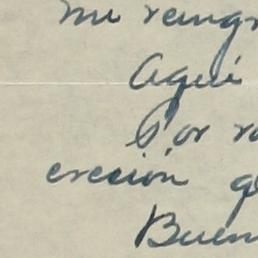 me reingr
Aquí
Por r
ereción q
Buen